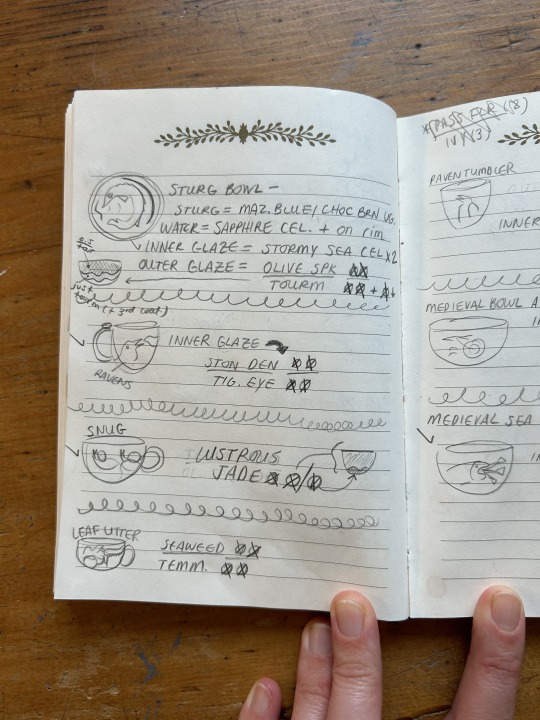 STURG BOWL –
STURG = MAZ. BLUE/ CHOC BRN UG.
WATER = SAPPHIRE CEL. + on rim
INNER GLAZE = STORMY SEA CEL X2
OUTER GLAZE = OLIVE SPK
TOURM
just
(+ 3rd coat)
INNER GLAZE
STON DEN
TIG. EYE
RAVENS
SNUG
LUSTROUS
JADE
LEAF UTTER
SEAWEED
TEMM.
*(PASS FER V(8)
IV)(3)
RAVEN TUMBLER
INNER
MEDIEVAL BOWL A
MEDIEVAL SEA